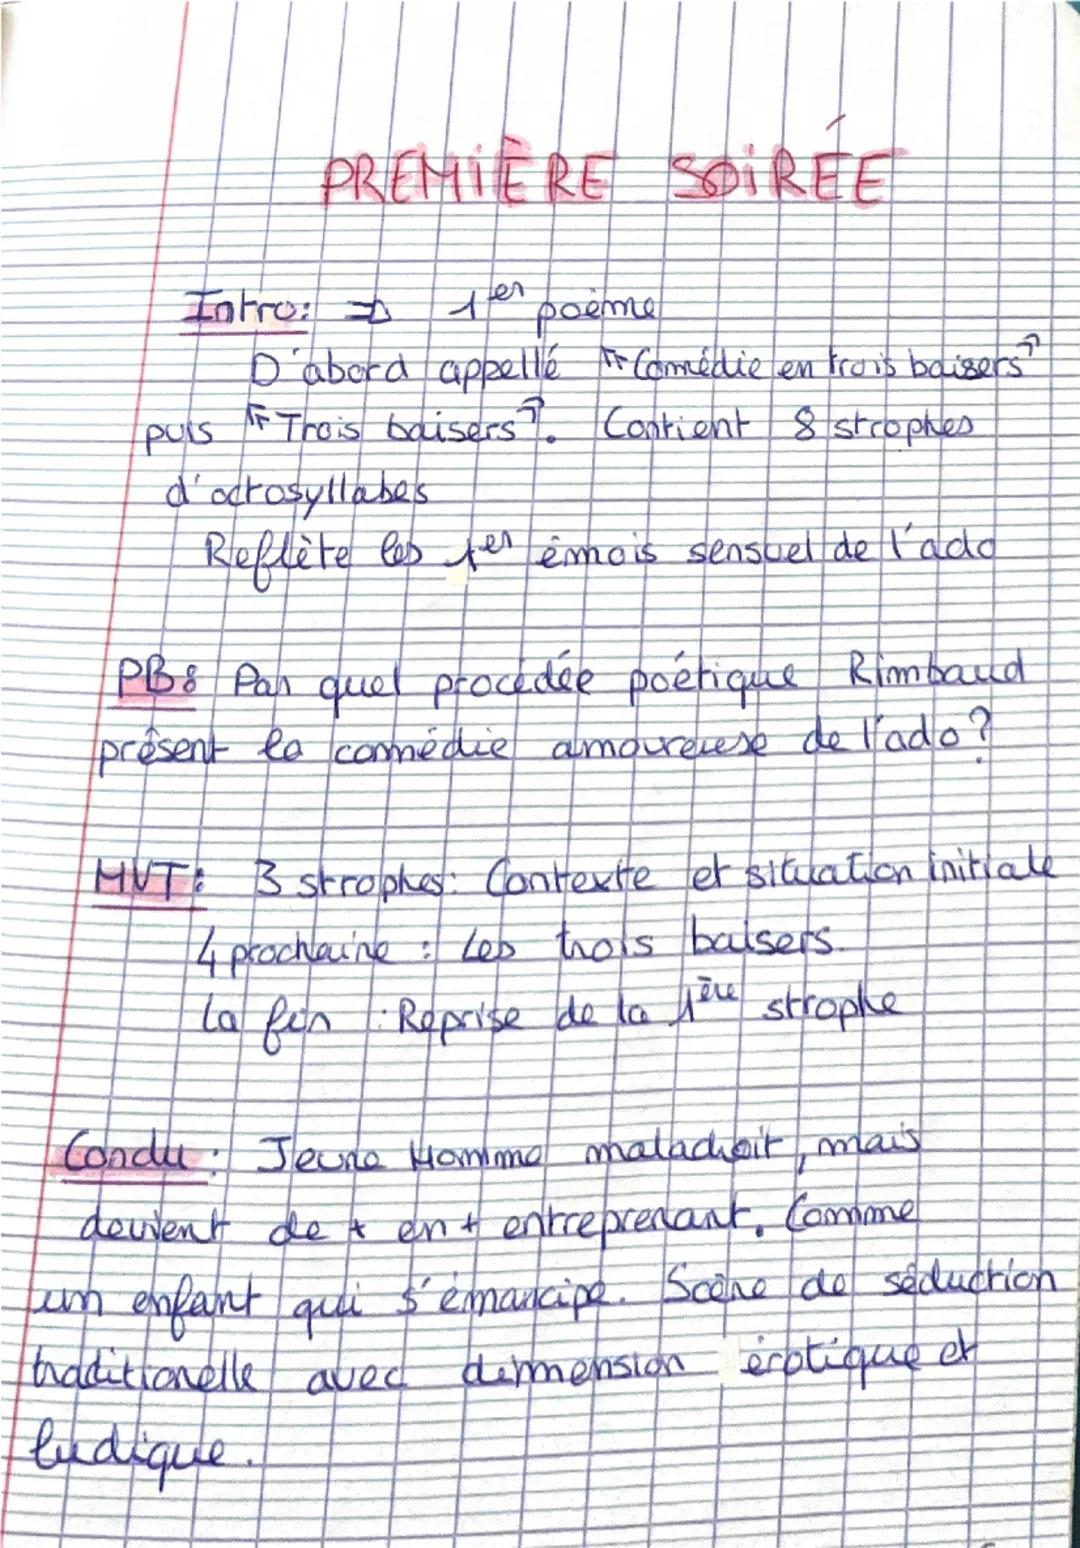 PREMIÈRE SOIRÉE
Intro: ⇒ 1er poème
D'abord appellé "Comédie en trois baisers"
puis "Trois baisers". Contient 8 strophes
d'octosyllabes
Reflète les 1er émois sensuel de l'ado
PB: Par quel procédée poétique Rimbaud
présent la comédie amoureuse de l'ado?
MVT: 3 strophes: Contexte et situation initiale
4 prochaine : Les trois baisers.
La fin : Reprise de la 1ère strophe
Conclu : Jeune Homme maladroit, mais
devient de + en + entreprenant. Comme
un enfant qui s'émancipe. Scène de séduction
traditionelle avec dimension érotique et
ludique.